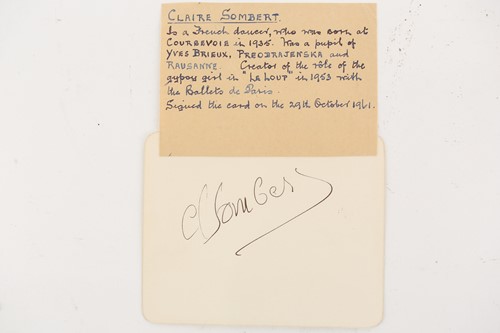 CLAIRE SOMBERT.
Is a French dancer, who was born at
COURBEVOIE in 1935. Was a pupil of
YVES BRIEUX, PREOBRAJENSKA and
RAUSANNE. Creator of the rôle of the
gypsy girl in "LE LOUP" in 1953 with
the Ballets de Paris.
Signed the card on the 29th October 1961.
Cl Sombert